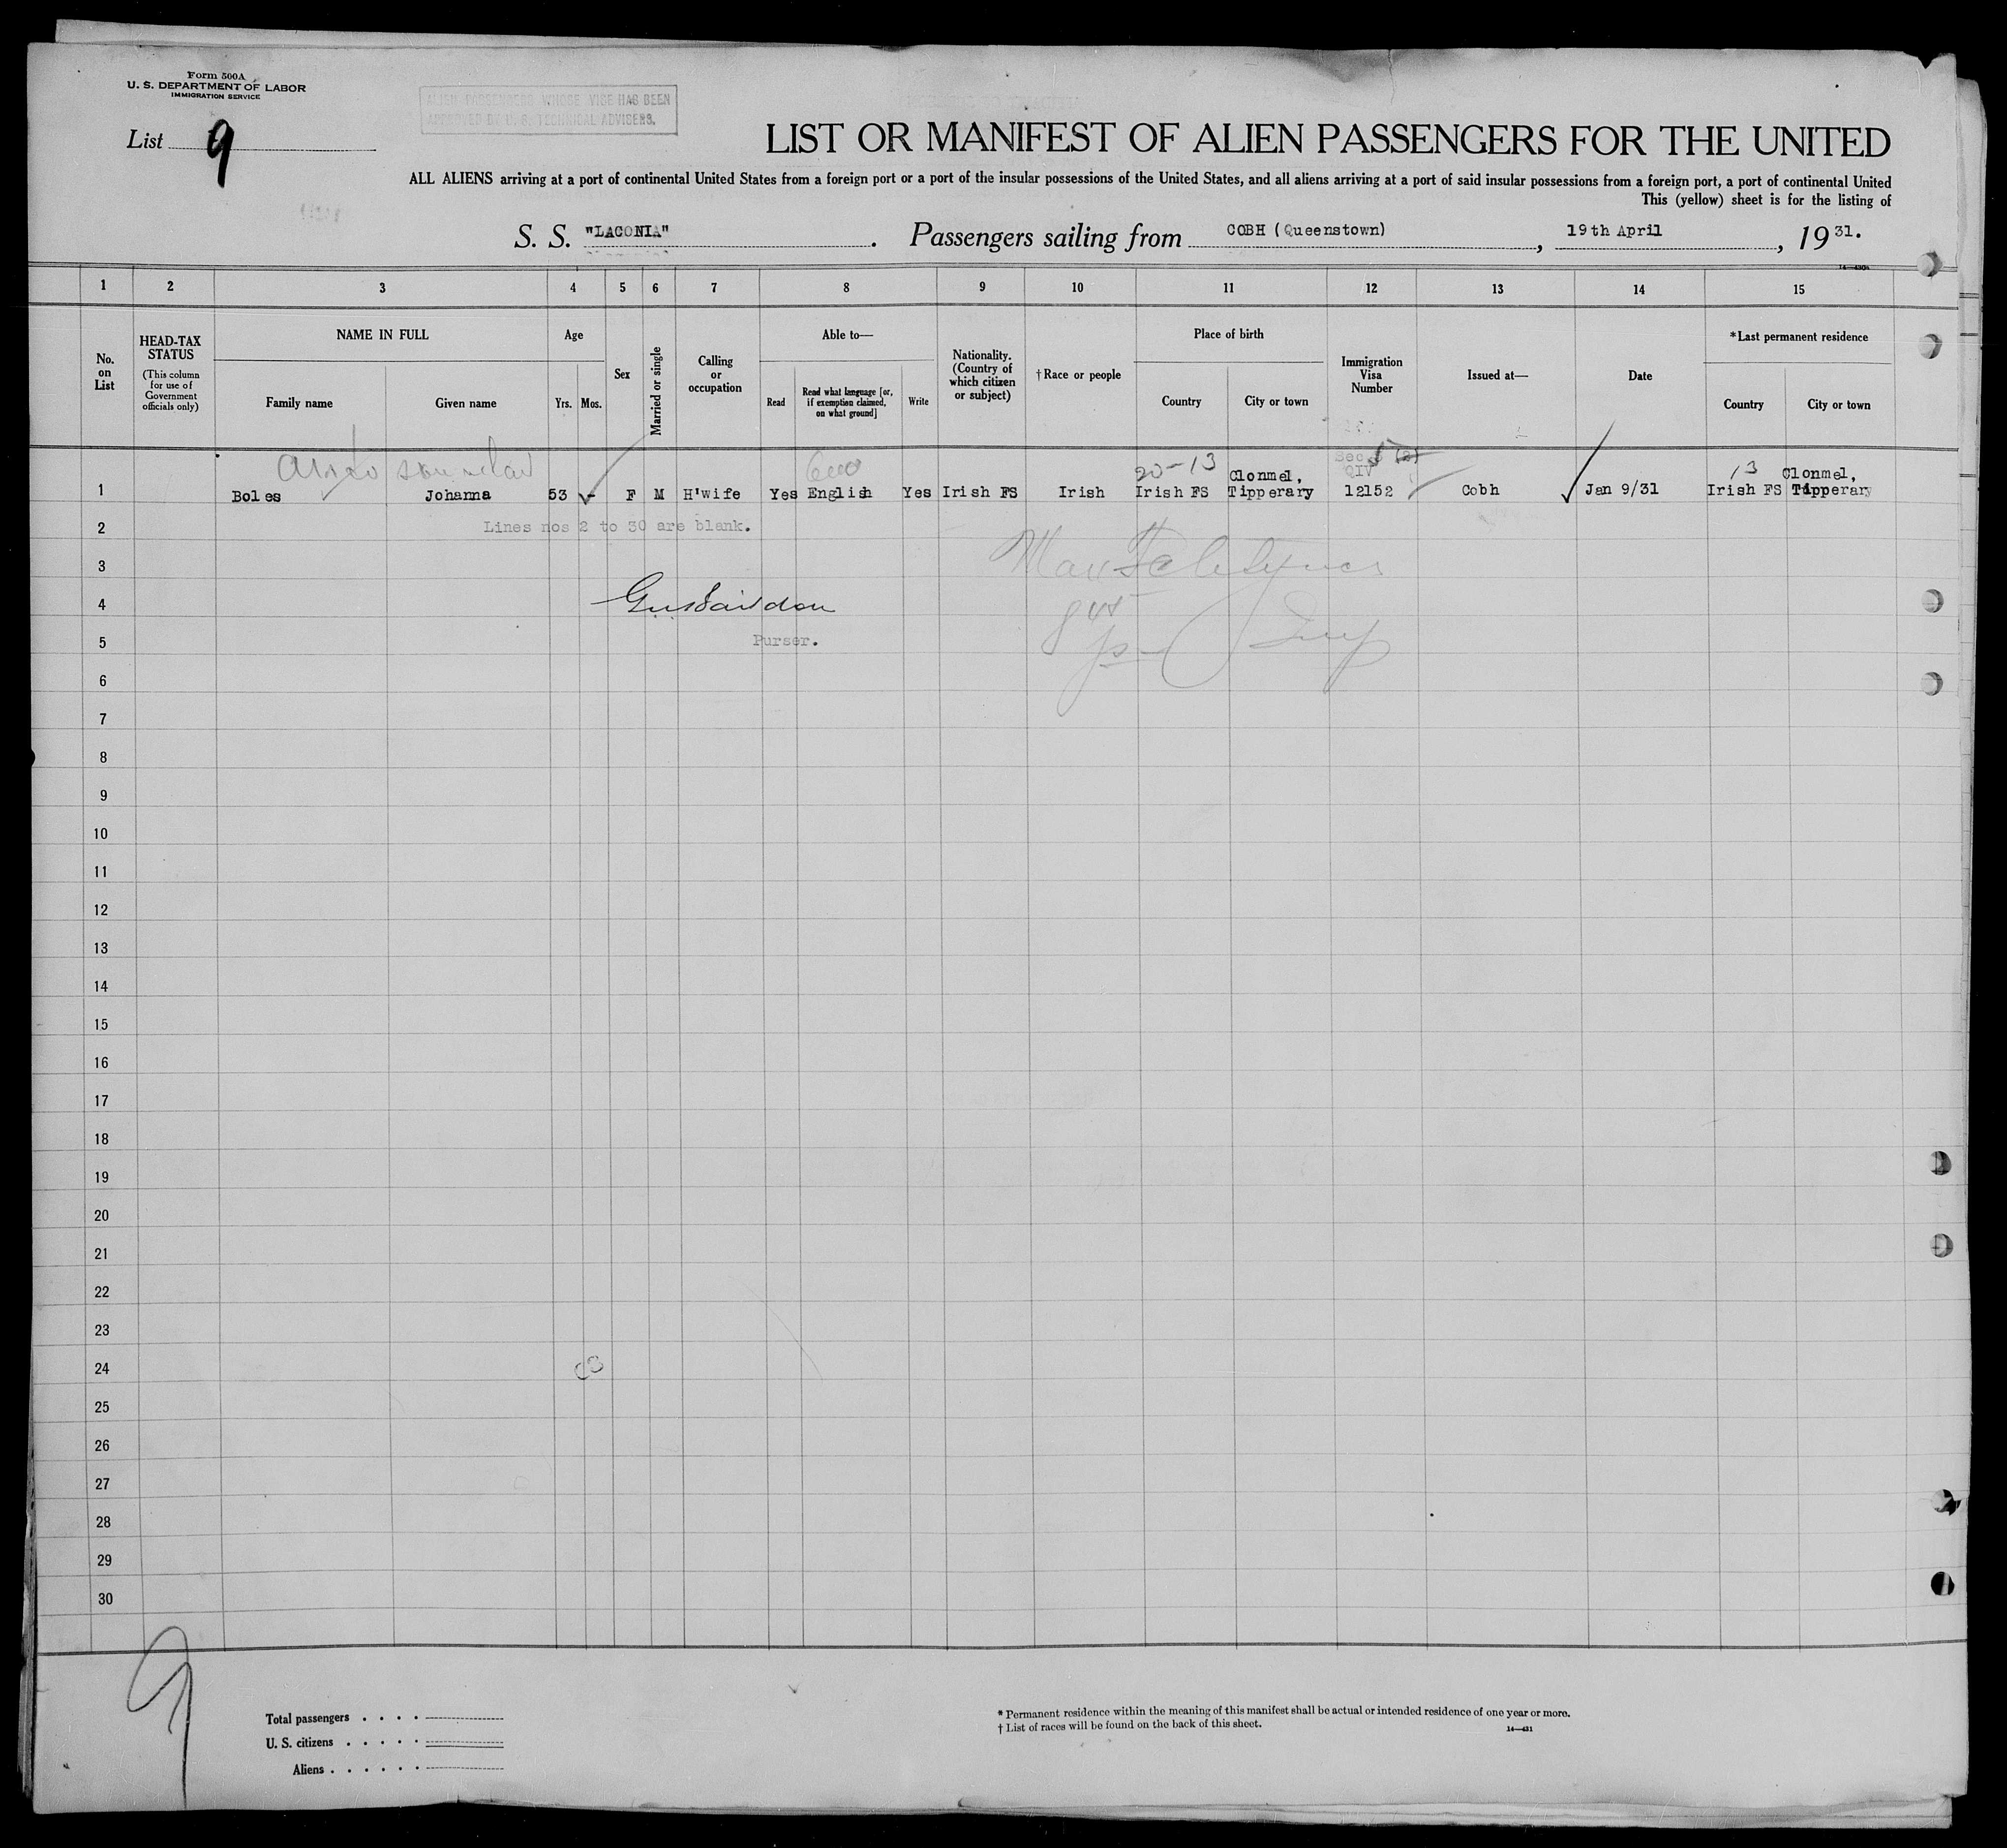 Form 500A
U. S. DEPARTMENT OF LABOR
IMMIGRATION SERVICE
ALIEN PASSENGERS WHOSE VISE HAS BEEN
APPROVED BY U. S. TECHNICAL ADVISERS.
List 9
LIST OR MANIFEST OF ALIEN PASSENGERS FOR THE UNITED
ALL ALIENS arriving at a port of continental United States from a foreign port or a port of the insular possessions of the United States, and all aliens arriving at a port of said insular possessions from a foreign port, a port of continental United
This (yellow) sheet is for the listing of
S. S. "LACONIA". Passengers sailing from COBH (Queenstown), 19th April, 1931.
1 2 3 4 5 6 7 8 9 10 11 12 13 14 15
No. on List
HEAD-TAX STATUS (This column for use of Government officials only)
NAME IN FULL
Family name Given name
Age
Yrs. Mos.
Sex
Married or single
Calling or occupation
Able to—
Read Read what language [or, if exemption claimed, on what ground] Write
Nationality. (Country of which citizen or subject)
†Race or people
Place of birth
Country City or town
Immigration Visa Number
Issued at—
Date
*Last permanent residence
Country City or town
20-13 Clonmel, QIV 13 Clonmel,
1 Boles Johanna 53 - F M H'wife Yes English Yes Irish FS Irish Irish FS Tipperary 12152 Cobh Jan 9/31 Irish FS Tipperary
2 Lines nos 2 to 30 are blank.
3
4
5 Purser.
6
7
8
9
10
11
12
13
14
15
16
17
18
19
20
21
22
23
24
25
26
27
28
29
30
9
Total passengers . . . .
U. S. citizens . . . . .
Aliens . . . . . .
* Permanent residence within the meaning of this manifest shall be actual or intended residence of one year or more.
† List of races will be found on the back of this sheet.
14—431